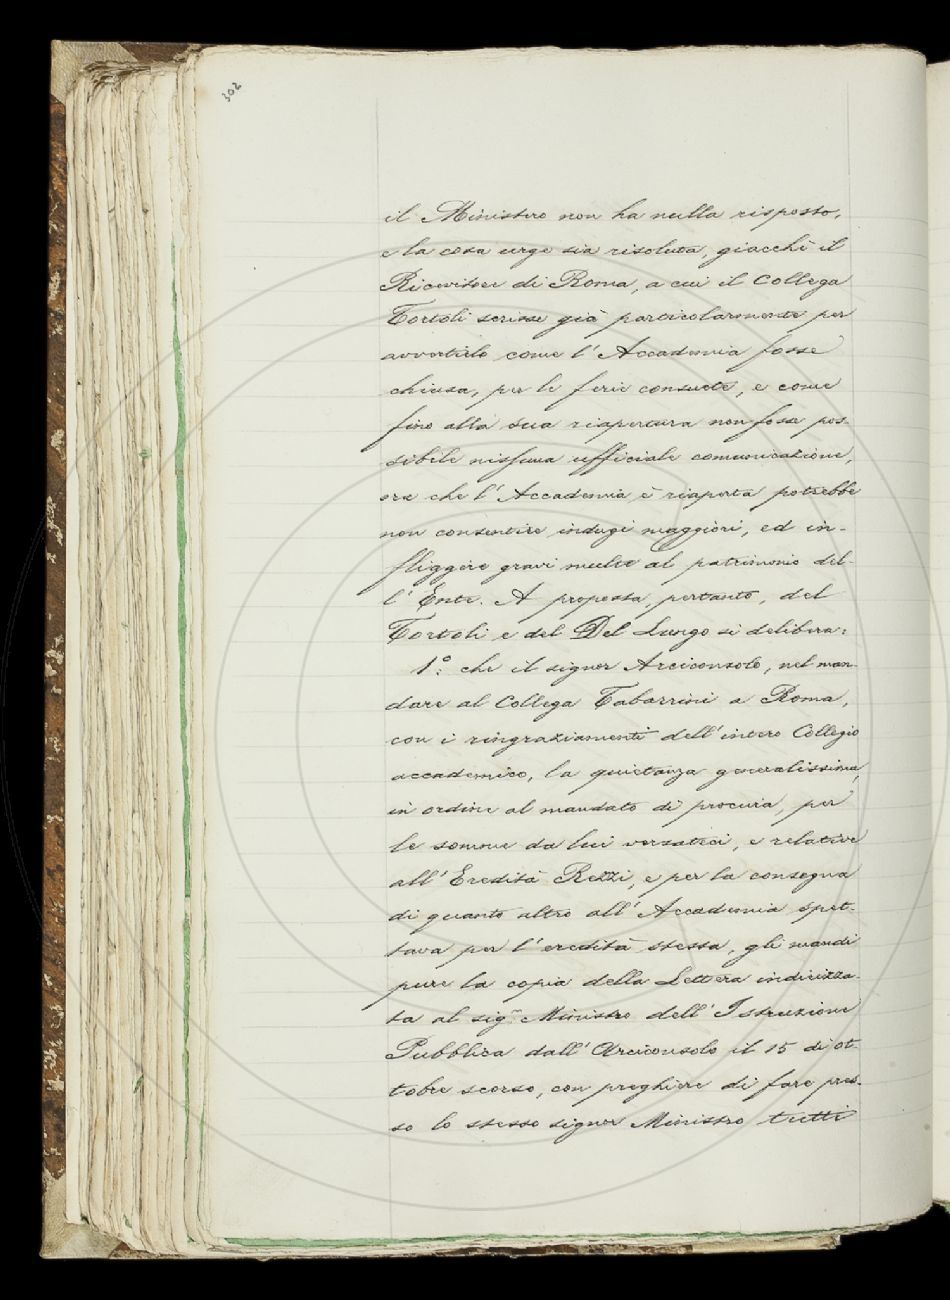 302
il Ministero non ha nulla risposto,
e la cosa urge sia risoluta, giacchè il
Ricevitore di Roma, a cui il Collega
Tortoli scrisse già particolarmente per
avvertirlo come l'Accademia fosse
chiusa, per le ferie consuete, e come
fino alla sua riapertura non fosse pos-
sibile nissuna ufficiale comunicazione,
ora che l'Accademia è riaperta potrebbe
non consentire indugi maggiori, ed in-
fliggere gravi multe al patrimonio del-
l'Ente. A proposta, pertanto, del
Tortoli e del Del Lungo si delibera:
1.° che il signor Arciconsolo, nel man-
dare al Collega Tabarrini a Roma,
con i ringraziamenti dell'intero Collegio
accademico, la quietanza generalissima,
in ordine al mandato di procura, per
le somme da lui versateci, e relative
all'Eredità Rezzi, e per la consegna
di quanto altro all'Accademia spet-
tava per l'eredità stessa, gli mandi
pure la copia della Lettera indirizza-
ta al sig.r Ministro dell'Istruzione
Pubblica dall'Arciconsolo il 15 di ot-
tobre scorso, con preghiere di fare pres-
so lo stesso signor Ministro tutti